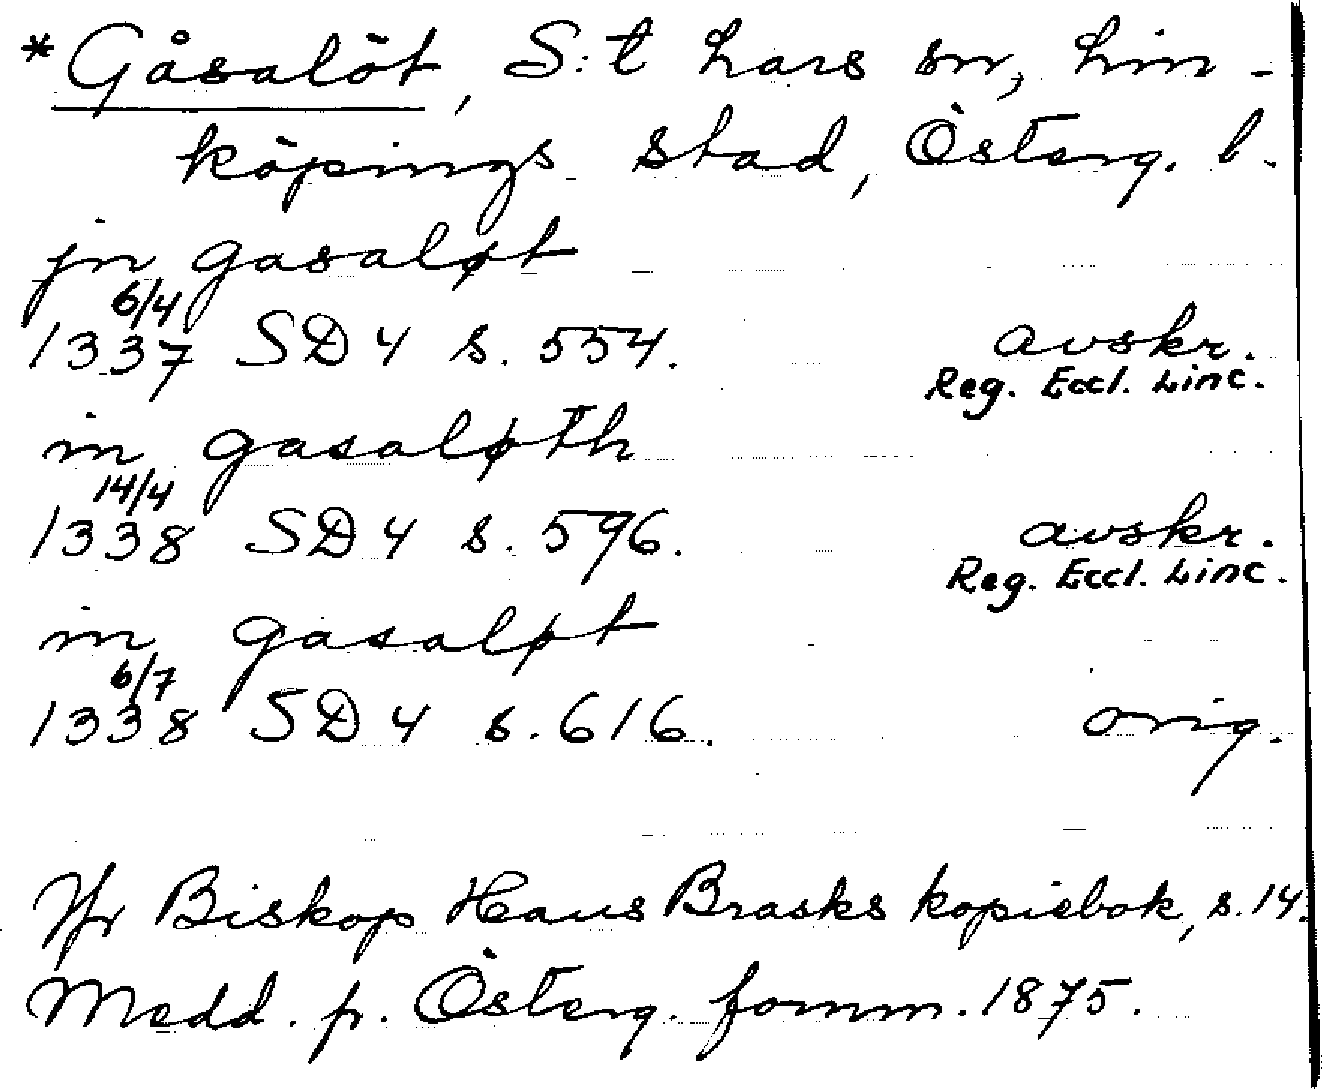 *Gåsalöt, S:t Lars sn, Lin-
köpings stad, Österg. l.
jn gasaløt
6/4
1337 SD 4 s. 554. avskr.
Reg. Eccl. Linc.
in gasaløth
14/4
1338 SD 4 s. 596. avskr.
Reg. Eccl. Linc.
in gasaløt
6/7
1338 SD 4 s. 616. orig.
Jfr Biskop Hans Brasks kopiebok, s. 14.
Medd. fr. Österg. fornm. 1875.